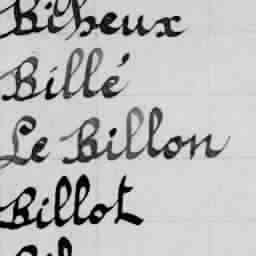 Biheux
Billé
Le Billon
Billot